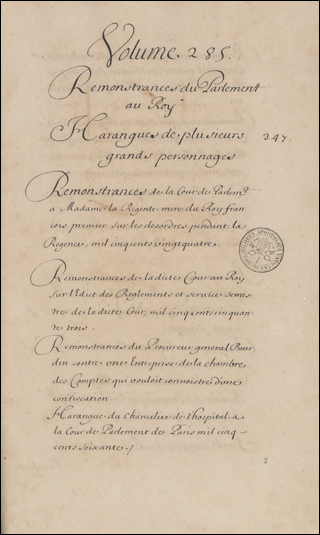 Volume. 285.
Remonstrances du Parlement
au Roy
Harangues de plusieurs
347.
grands personnages
Remonstrances de la Cour de Parlemt
a Madame la Regente mere du Roy fran
cois premier sur les desordres pendant la
Regence, mil cinq cents vingt quatre.
Remonstrances de la dicte Cour au Roy
sur l'Edict des Reglements et service semes
tre de la dicte Cour, mil cinq cents cinquan
te trois.
Remonstrances du Procureur general Bour,
din contre une Entreprise de la chambre
des Comptes qui vouloit connoistre d'une
confiscation.
Harangue du Chancelier de l'hospital a
la Cour de Parlement de Paris mil cinq
cents soixante ./